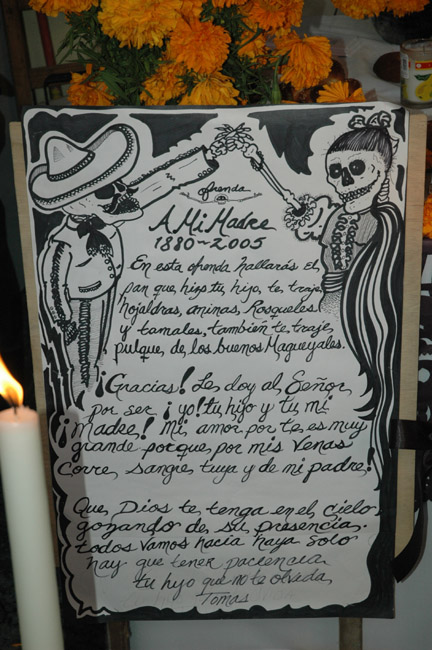 ofrenda
A Mi Madre
1880~2005
En esta ofrenda hallarás El
pan que hizo tu hijo, te traje
hojaldras, animas, Rosqueles
y tamales, también te traje
pulque, de los buenos Magueyales.
¡Gracias! Le doy al Señor
por ser ¡yo! tu hijo y tu mi
¡Madre! Mi amor por ti es muy
grande porque por mis venas
Corre, sangre tuya y de mi padre!
Que Dios te tenga en el cielo
gozando de su presencia.
todos Vamos hacia haya solo
hay que tener paciencia
tu hijo que no te olvida
Tomas